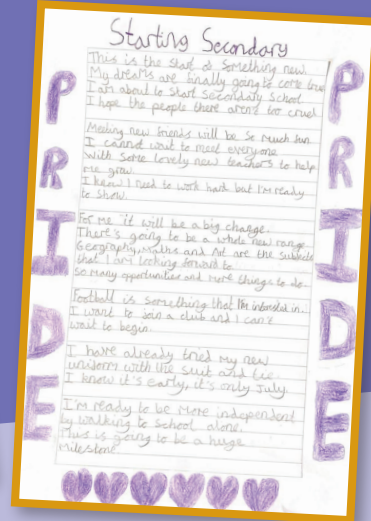 Starting Secondary
This is the start of something new.
My dreams are finally going to come true
I am about to start secondary school
I hope the people there aren't too cruel.
Meeting new friends will be so much fun
I cannot wait to meet everyone
With some lovely new teachers to help
me grow.
I know I need to work hard but I'm ready
to show.
For me it will be a big change.
There's going to be a whole new range.
Geography, Maths and Art are the subjects
that I am looking forward to.
So many opportunities and more things to do.
Football is something that I'm interested in.
I want to join a club and I can't
wait to begin.
I have already tried my new
uniform with the suit and tie.
I know it's early, it's only July.
I'm ready to be more independent
by walking to school alone.
This is going to be a huge
Milestone.
PRIDE
PRIDE